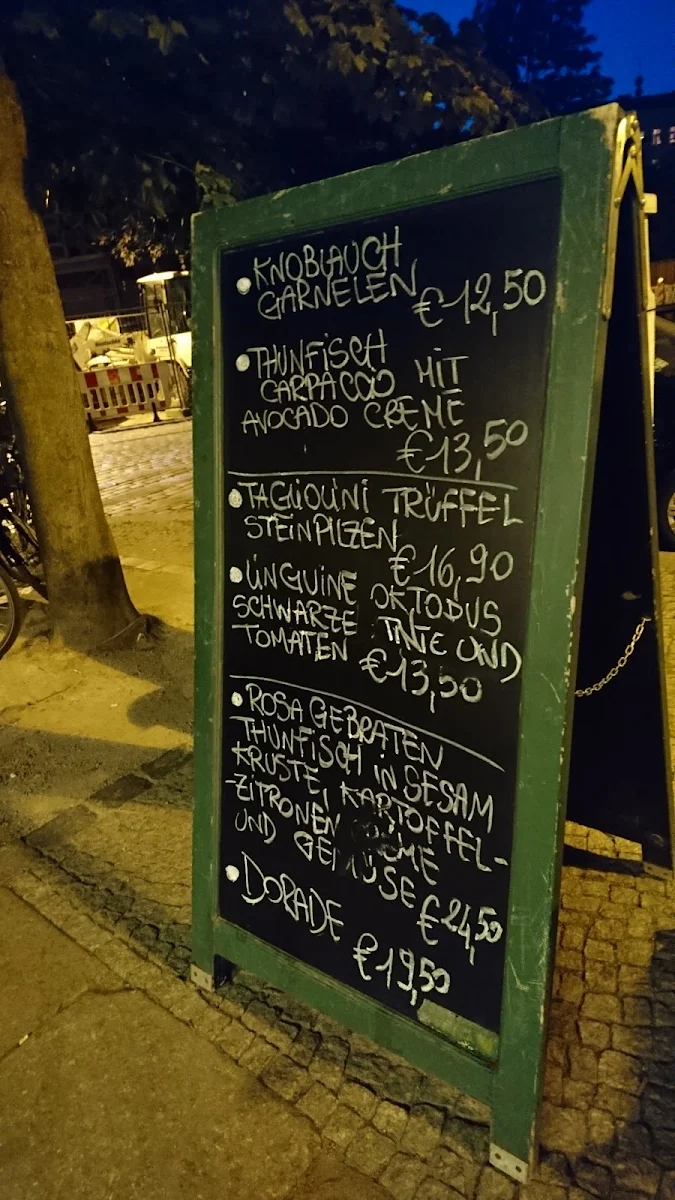 • KNOBLAUCH
GARNELEN
€12,50
• THUNFISCH
CARPACCIO MIT
AVOCADO CREME
€13,50
• TAGLIOLINI TRÜFFEL
STEINPILZEN
€16,90
• LINGUINE OKTOPUS
SCHWARZE TINTE UND
TOMATEN €13,50
• ROSA GEBRATEN
THUNFISCH IN SESAM
KRUSTE, KARTOFFEL-
ZITRONEN
UND GEMÜSE €24,50
• DORADE
€19,50